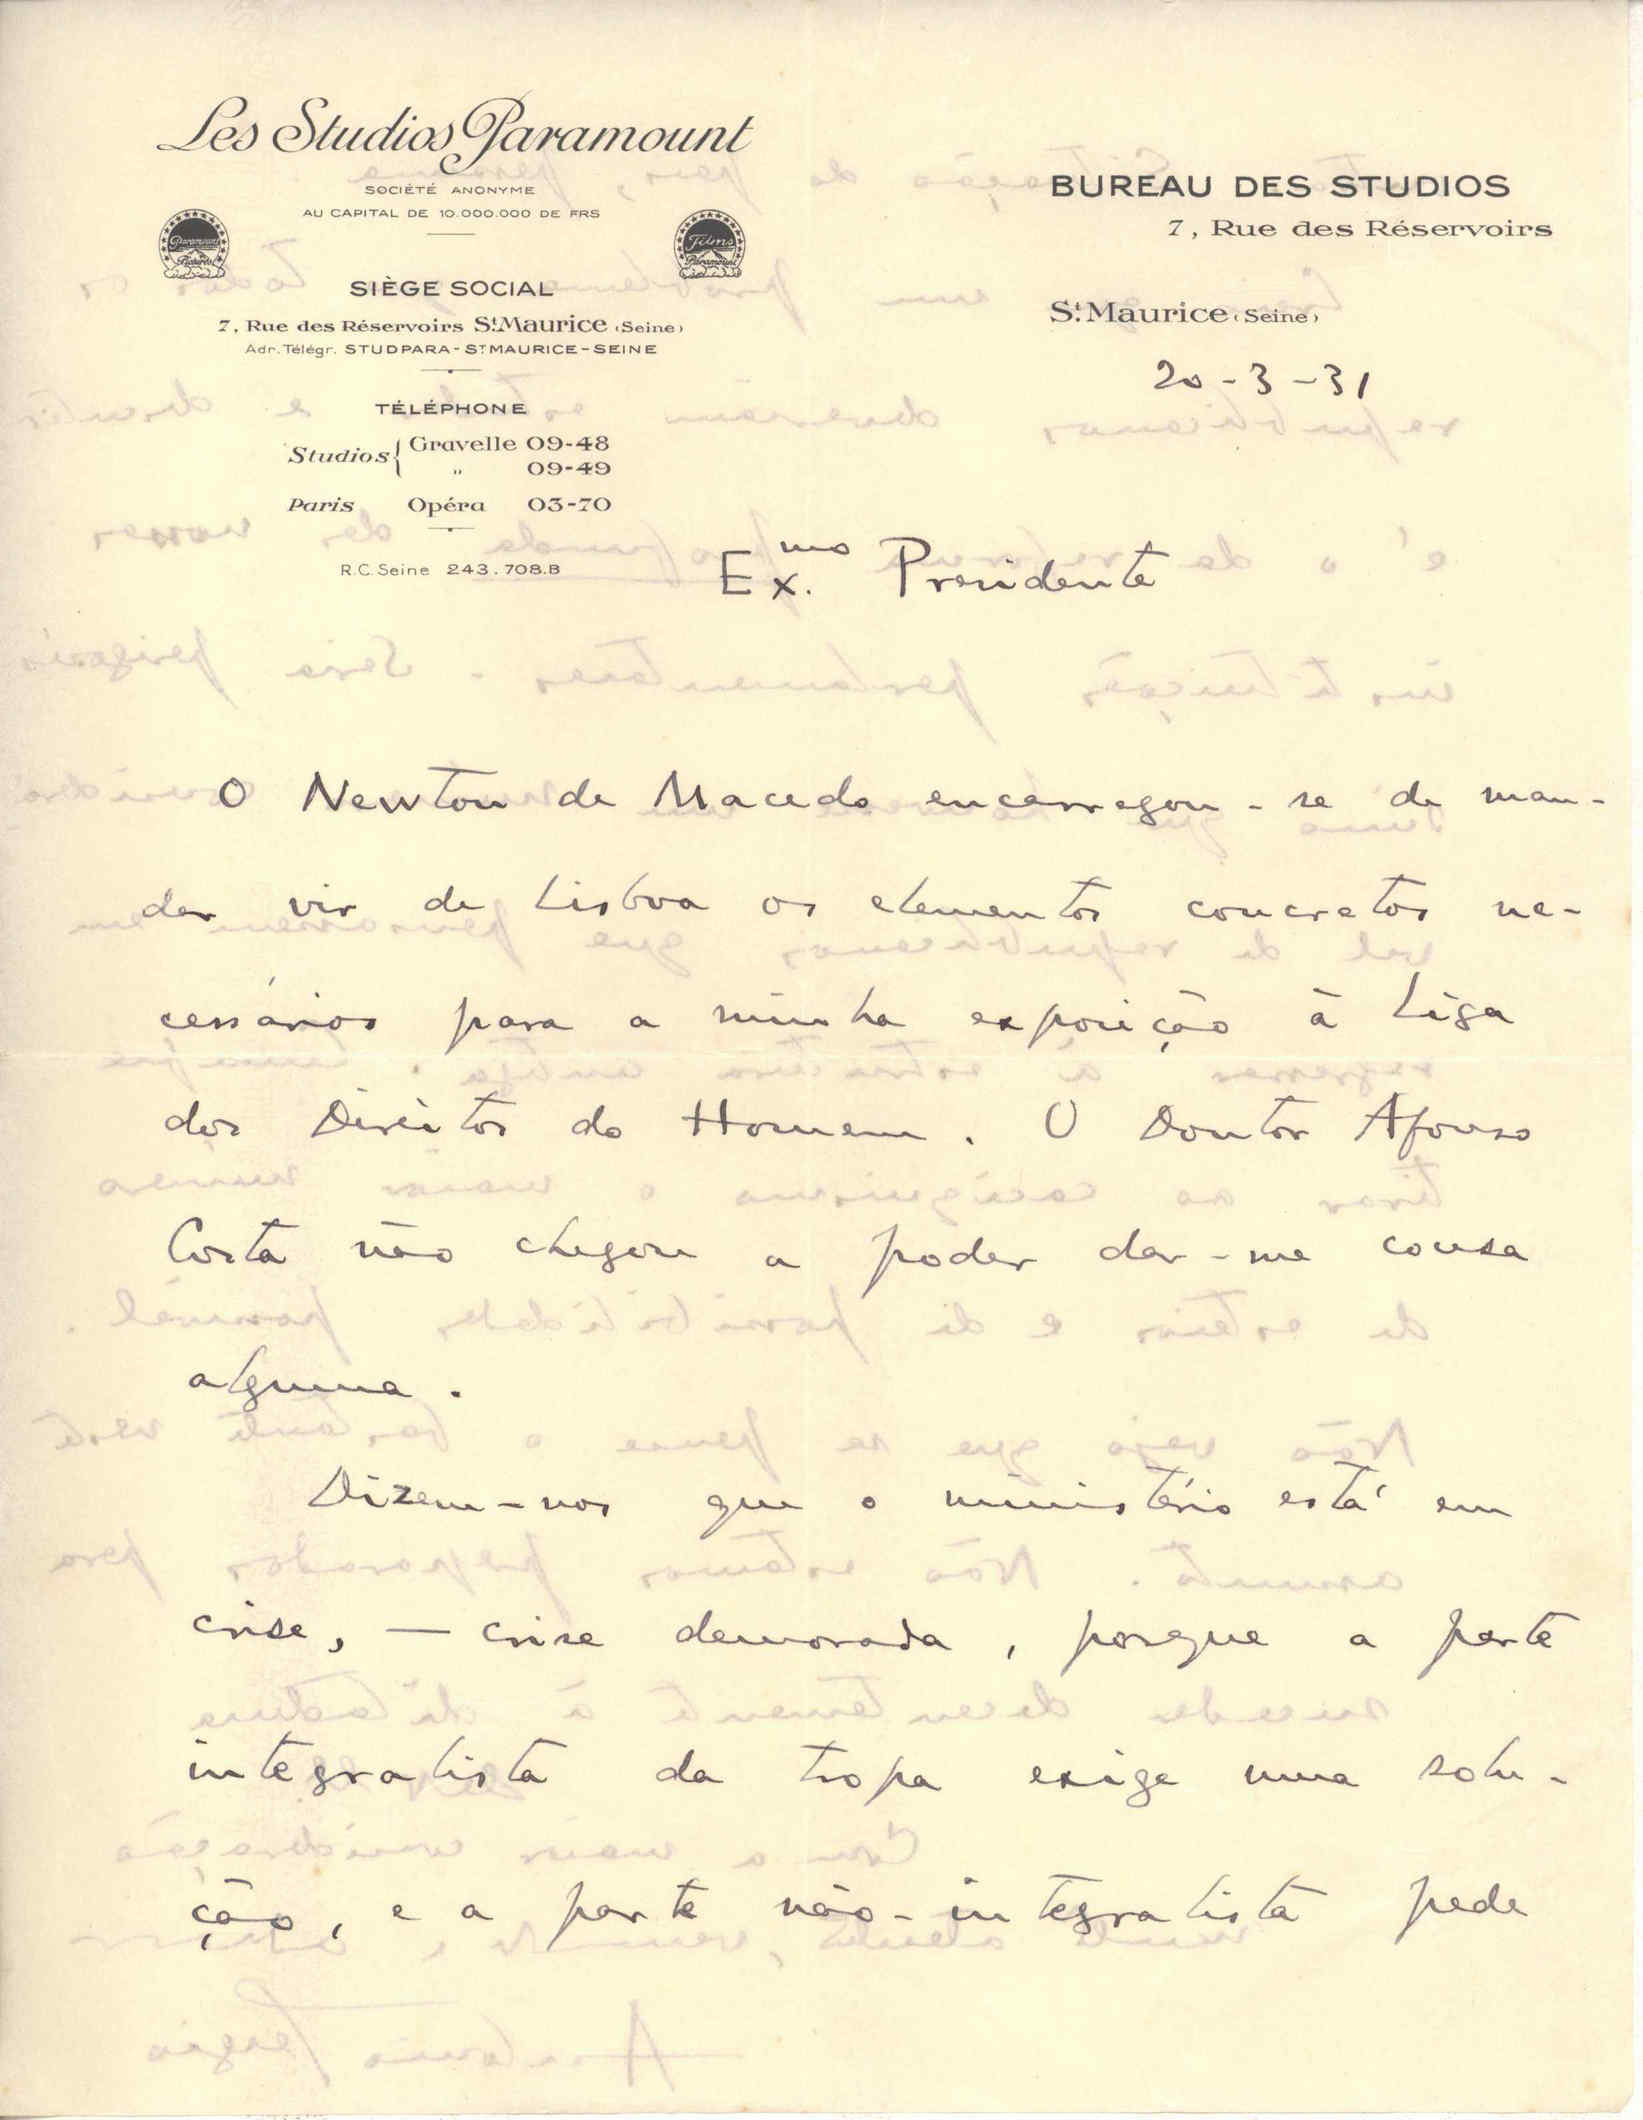 Les Studios Paramount
SOCIÉTÉ ANONYME
AU CAPITAL DE 10.000.000 DE FRS
Paramount Pictures
Films Paramount
SIÈGE SOCIAL
7, Rue des Réservoirs St. Maurice (Seine)
Adr. Télégr. STUDPARA - ST MAURICE - SEINE
TÉLÉPHONE
Studios { Gravelle 09-48
" 09-49
Paris Opéra 03-70
R.C. Seine 243.708.B
BUREAU DES STUDIOS
7, Rue des Réservoirs
St. Maurice (Seine)
20-3-31
Ex.mo Presidente
O Newton de Macedo encarregou-se de man-
dar vir de Lisboa os elementos concretos ne-
cessários para a minha exposição à Liga
dos Direitos do Homem. O Doutor Afonso
Costa não chegou a poder dar-me cousa
alguma.
Dizem-nos que o ministério está em
crise, — crise demorada, porque a parte
integralista da tropa exige uma solu-
ção, e a parte não-integralista pede